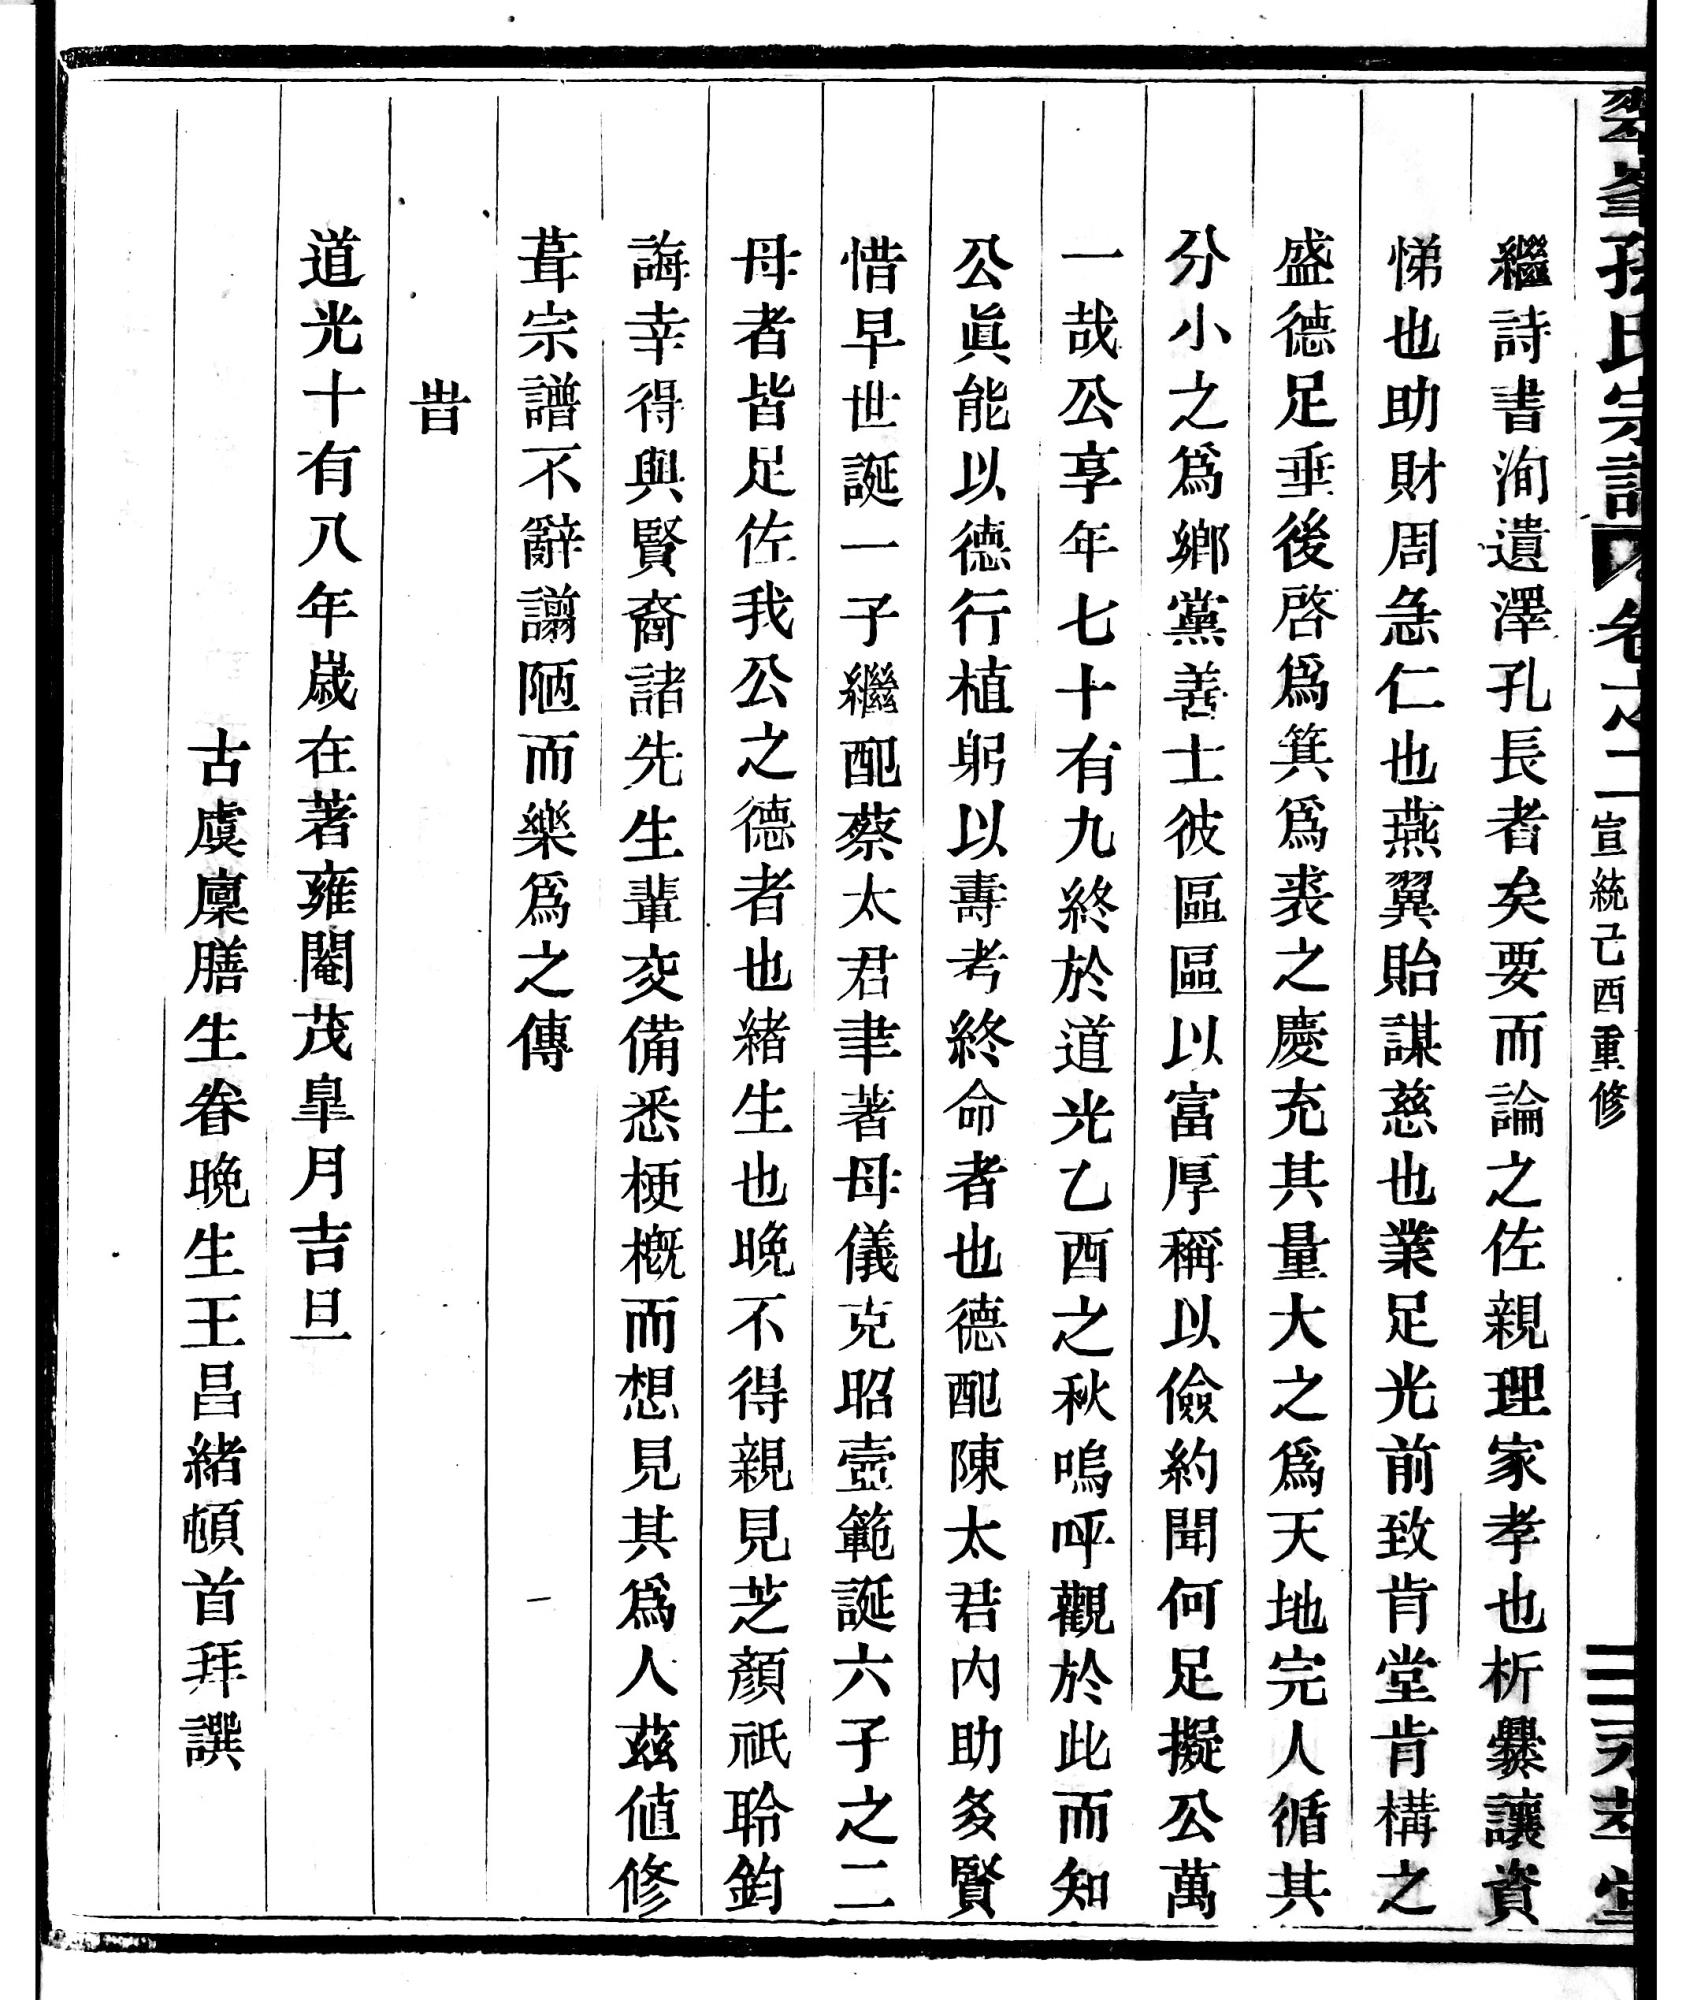 翠峯孫氏宗譜 卷之二 宣統己酉重修 二 永萃堂
繼詩書洵遺澤孔長者矣要而論之佐親理家孝也析爨讓資
悌也助財周急仁也燕翼貽謀慈也業足光前致肯堂肯構之
盛德足垂後啓爲箕爲裘之慶充其量大之爲天地完人循其
分小之爲鄉黨善士彼區區以富厚稱以儉約聞何足擬公萬
一哉公享年七十有九終於道光乙酉之秋嗚呼觀於此而知
公眞能以德行植躬以壽考終命者也德配陳太君内助多賢
惜早世誕一子繼配蔡太君聿著母儀克昭壼範誕六子之二
母者皆足佐我公之德者也緒生也晚不得親見芝顏祇聆鈞
誨幸得與賢裔諸先生輩交備悉梗概而想見其爲人茲值修
葺宗譜不辭謭陋而樂爲之傳
旹
道光十有八年歲在著雍閹茂皐月吉旦
古虞廩膳生眷晚生王昌緒頓首拜譔